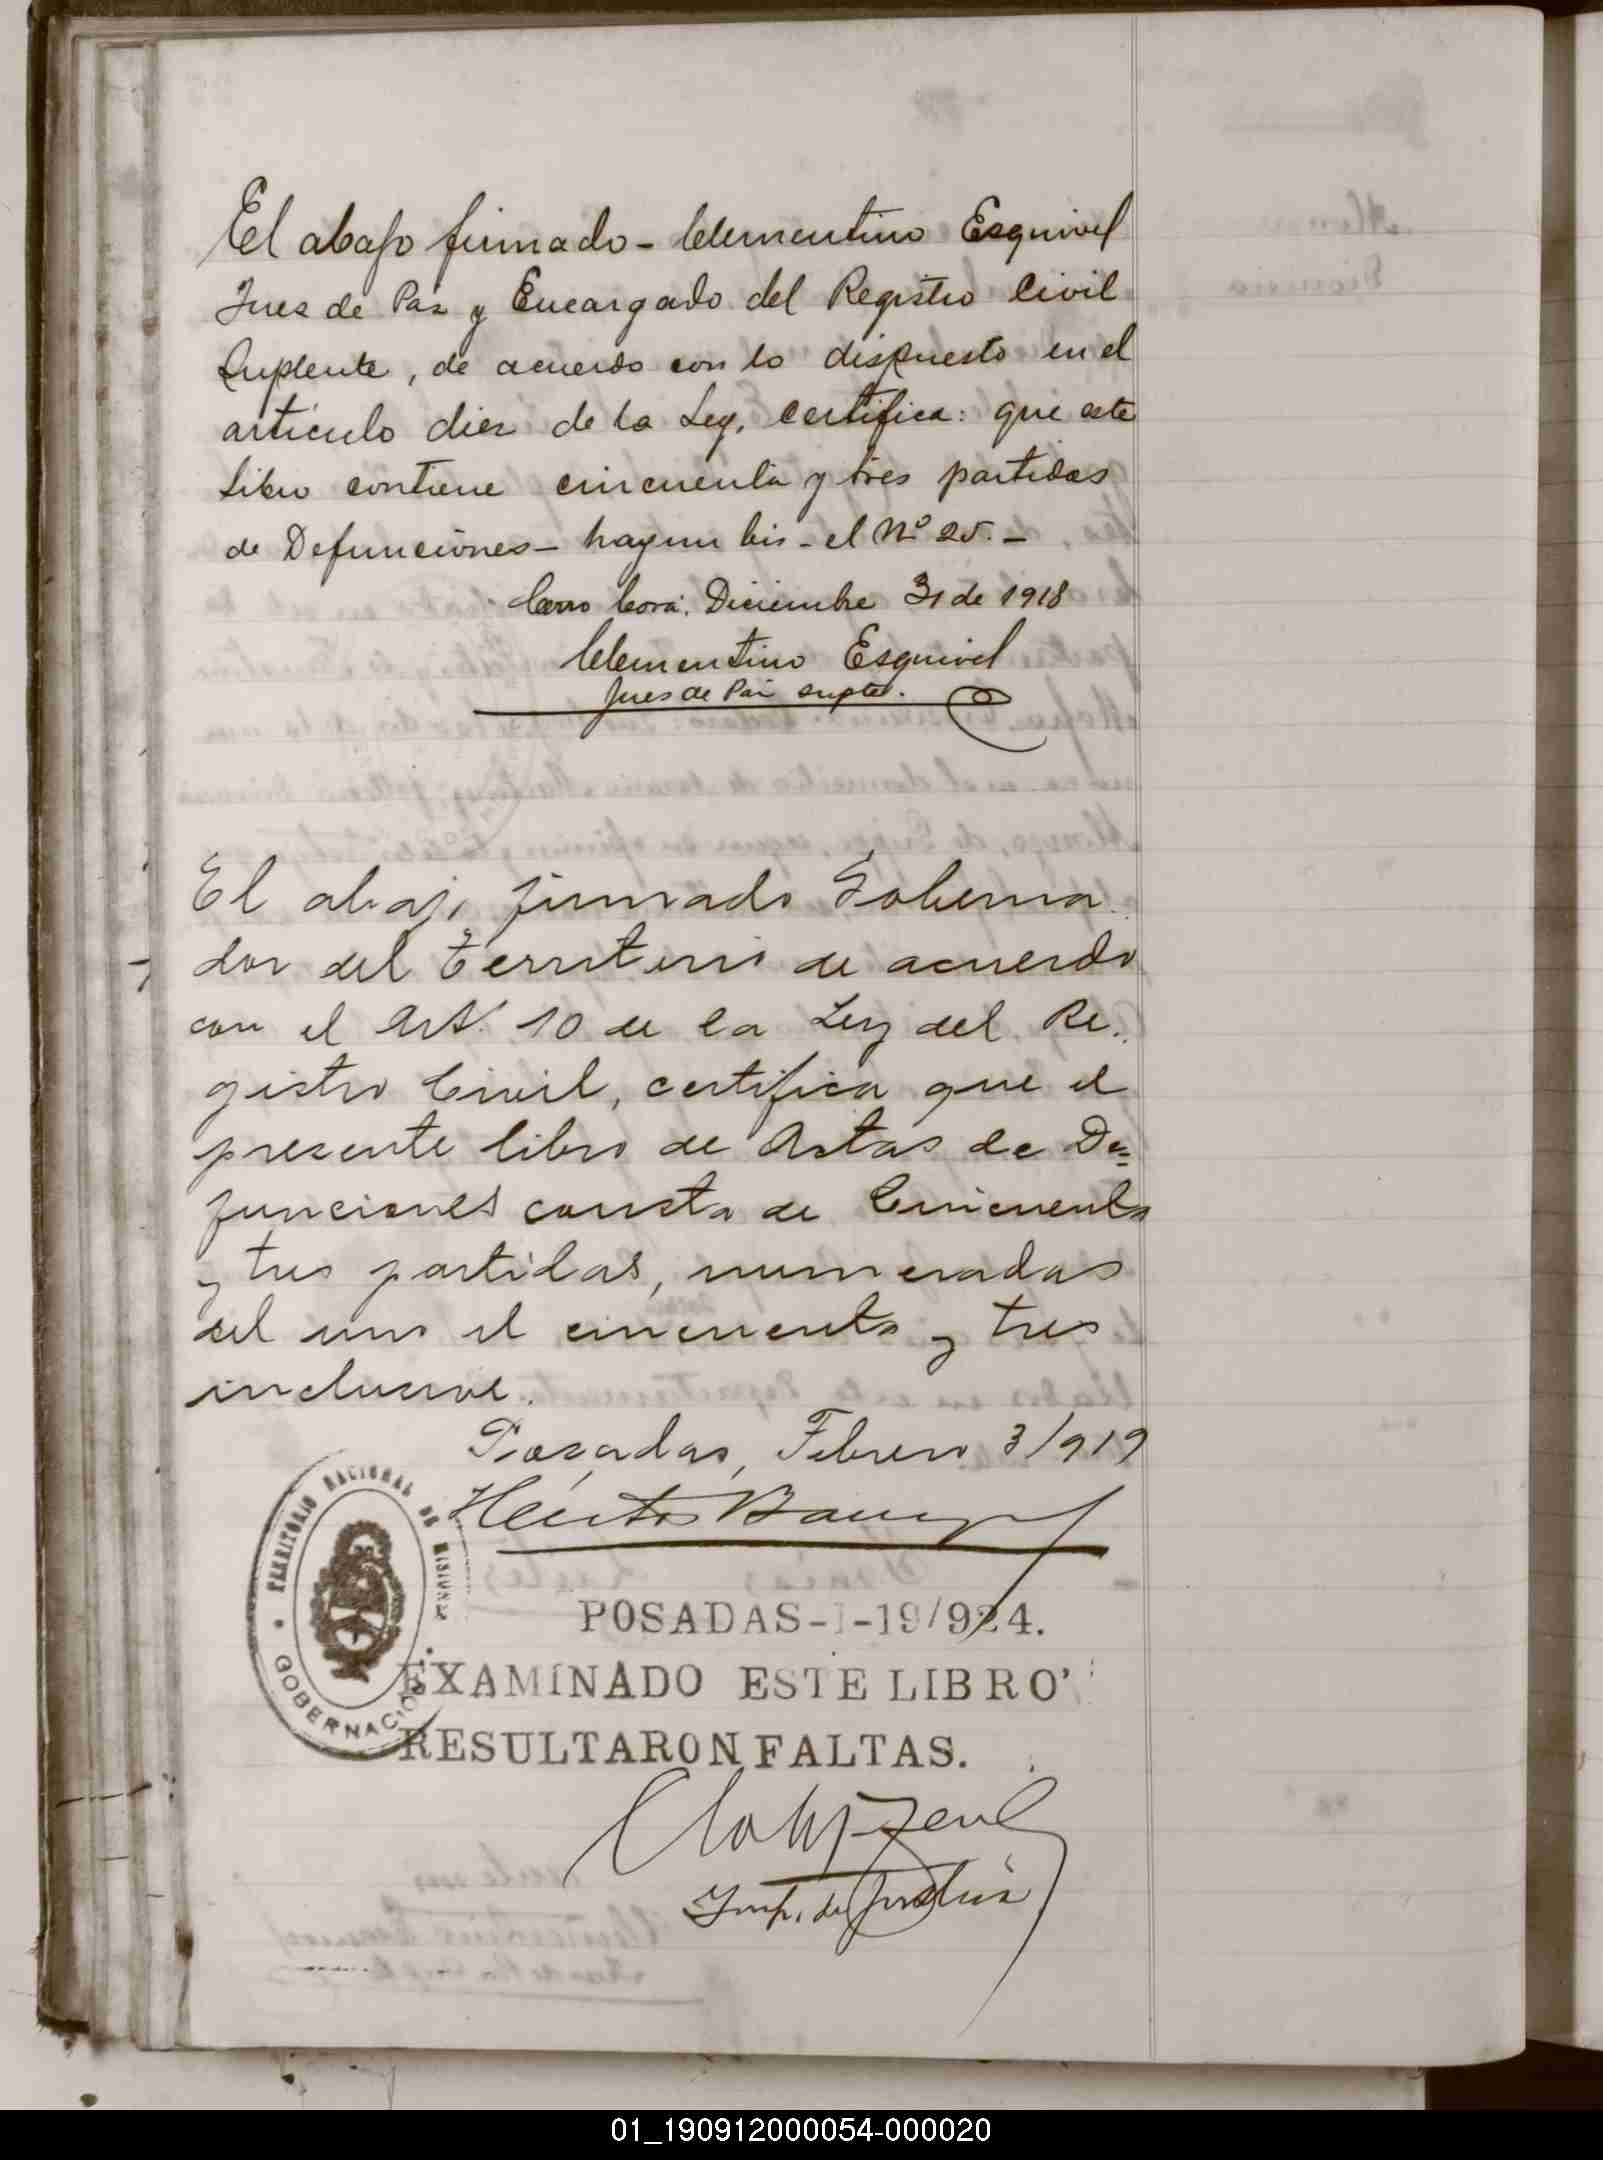 El abajo firmado - Clementino Esquivel
Jues de Paz y Encargado del Registro Civil
Suplente, de acuerdo con lo dispuesto en el
articulo diez de la Ley, Certifica: que este
Libro contiene cincuenta y tres partidas
de Defunciones - hay un bis - el Nº 25. -
Cerro Corá. Diciembre 31 de 1918
Clementino Esquivel
Jues de Paz supte.
El abajo firmado Goberna
dor del Territorio de acuerdo
con el Art. 10 de la Ley del Re.
gistro Civil, certifica que el
presente libro de Actas de De=
funciones consta de Cincuenta
y tres partidas, numeradas
del uno al cincuenta y tres
inclusive.
Posadas, Febrero 3/919
Héctor
TERRITORIO NACIONAL DE MISIONES
GOBERNACION
POSADAS-1-19/924.
EXAMINADO ESTE LIBRO
RESULTARON FALTAS.
Insp. de Justicia
01_190912000054-000020